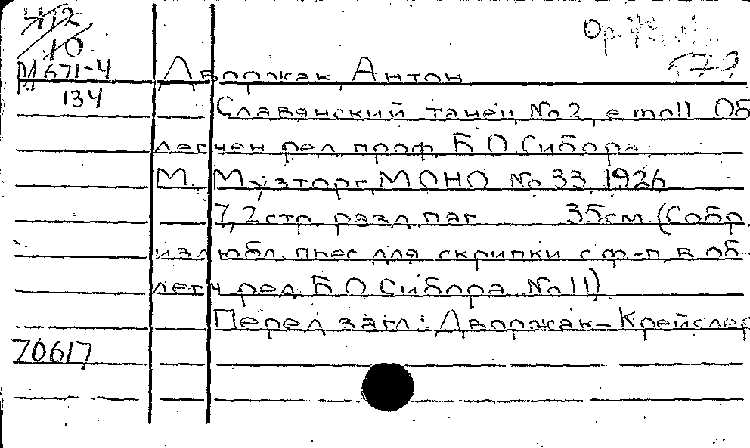 412
10
М 671-4
134
Дворжак, Антон
Славянский танец No 2, e moll Об
легчен ред. проф. Б О Сибора
М. Музторг МОНО No 33, 1926
7, 2 стр. разл. паг. 35 см (Собр.
излюбл. пьес для скрипки с ф-п. в об
легч ред. Б О Сибора No 11)
Перед загл: Дворжак-Крейслер
70617